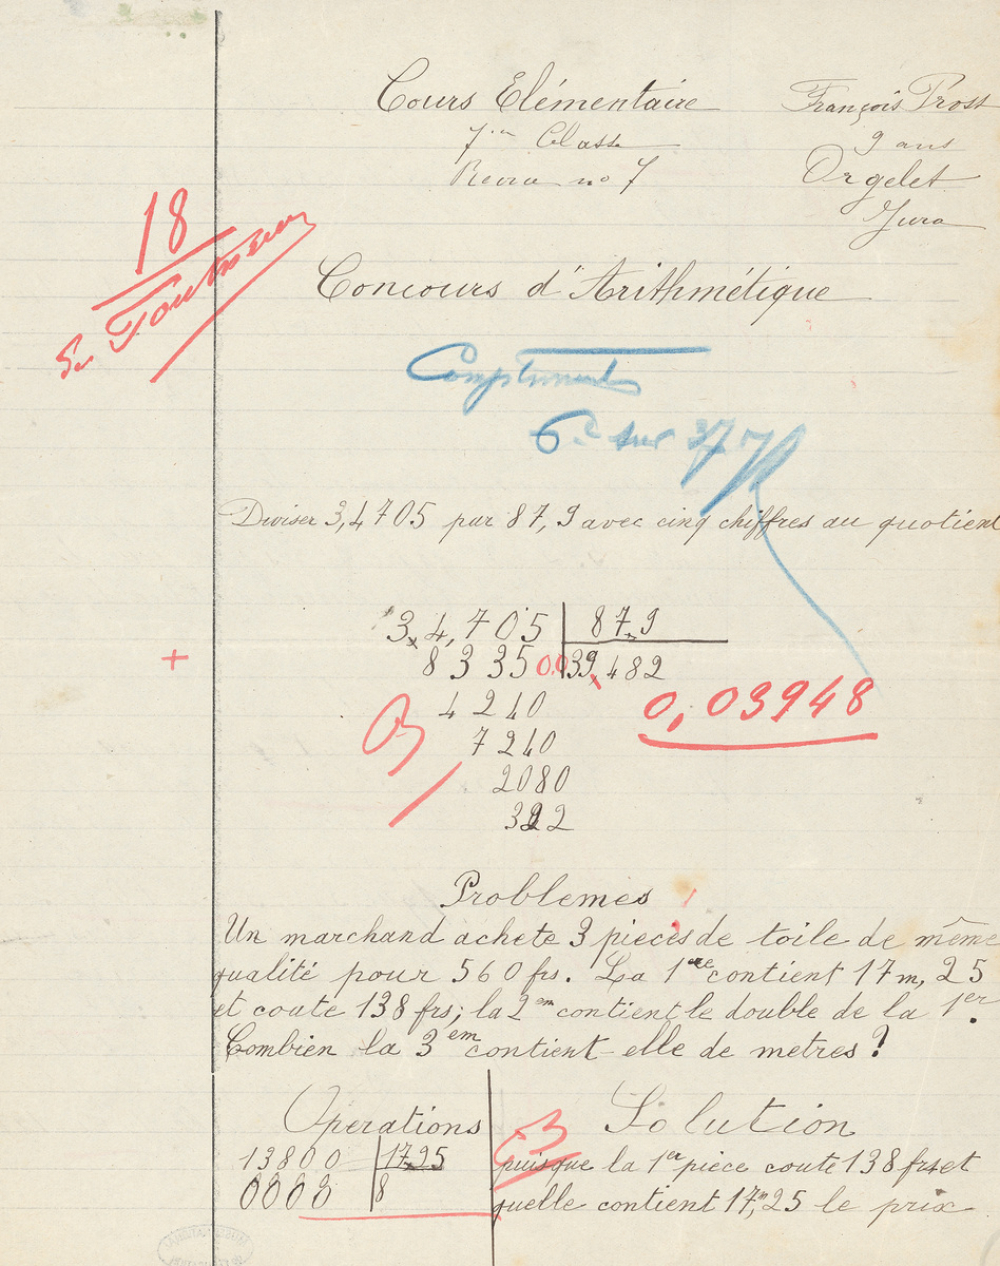 Cours Elémentaire
François Prost
7me Classe
9 ans
Devoir no 7
Orgelet
Jura
18
Concours d'Arithmétique
Compliments
6e sur 37
Diviser 3,4705 par 87,9 avec cinq chiffres au quotient
3,4,705 | 87,9
83350 0,039,482
4240
7240
2080
322
+
0,03948
Problemes
Un marchand achete 3 pieces de toile de même
qualité pour 560 frs. La 1re contient 17m,25
et coute 138 frs; la 2em contient le double de la 1er.
Combien la 3em contient-elle de metres ?
Opérations
Solution
13800 | 17,25
0000 | 8
puisque la 1er piece coute 138 frs et
quelle contient 17m,25 le prix